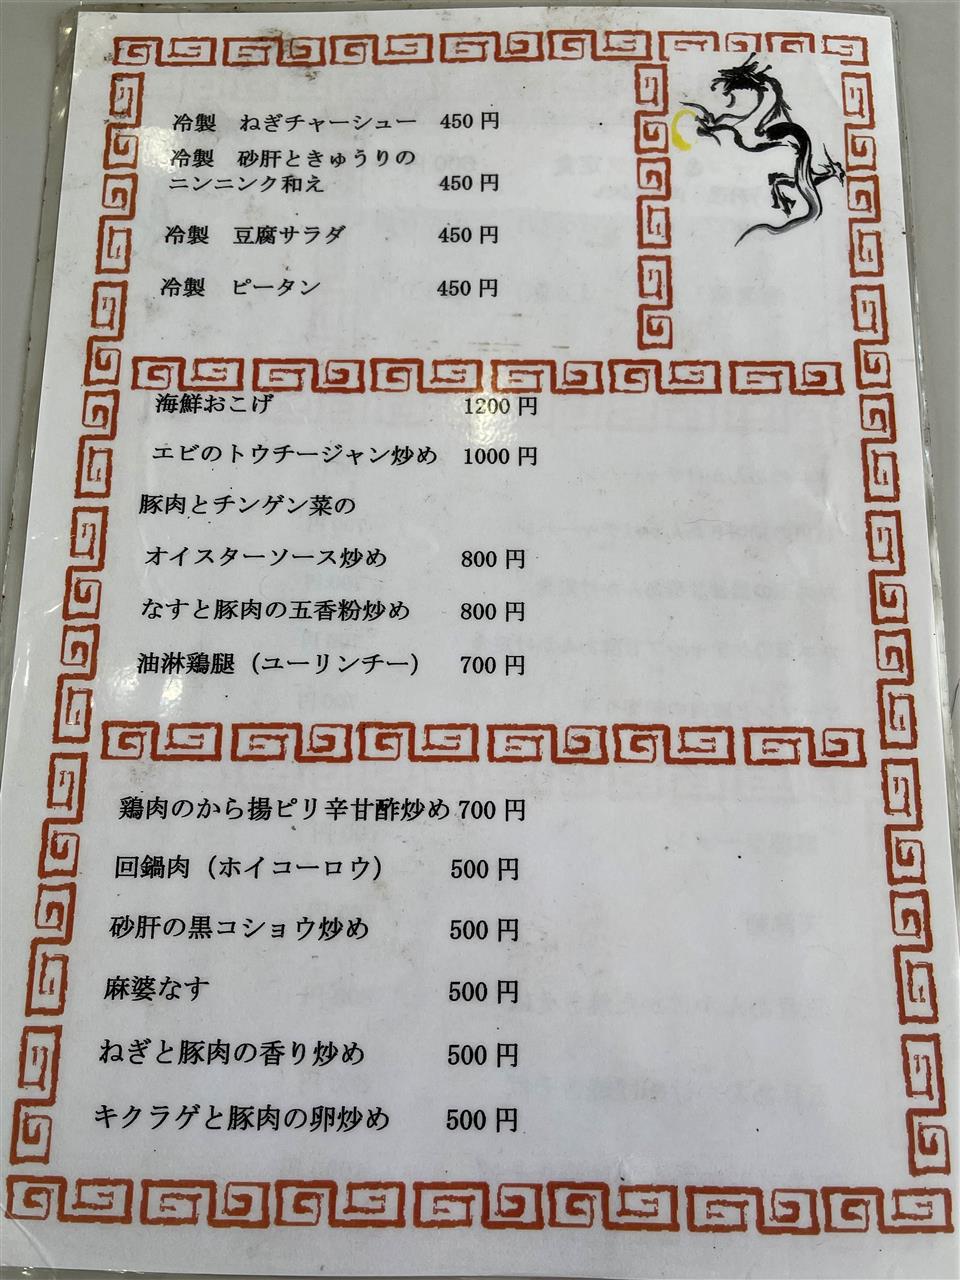 冷製　ねぎチャーシュー　450 円
冷製　砂肝ときゅうりの
ニンニンク和え　450 円
冷製　豆腐サラダ　450 円
冷製　ピータン　450 円
海鮮おこげ　1200 円
エビのトウチージャン炒め　1000 円
豚肉とチンゲン菜の
オイスターソース炒め　800 円
なすと豚肉の五香粉炒め　800 円
油淋鶏腿（ユーリンチー）　700 円
鶏肉のから揚ピリ辛甘酢炒め 700 円
回鍋肉（ホイコーロウ）　500 円
砂肝の黒コショウ炒め　500 円
麻婆なす　500 円
ねぎと豚肉の香り炒め　500 円
キクラゲと豚肉の卵炒め　500 円